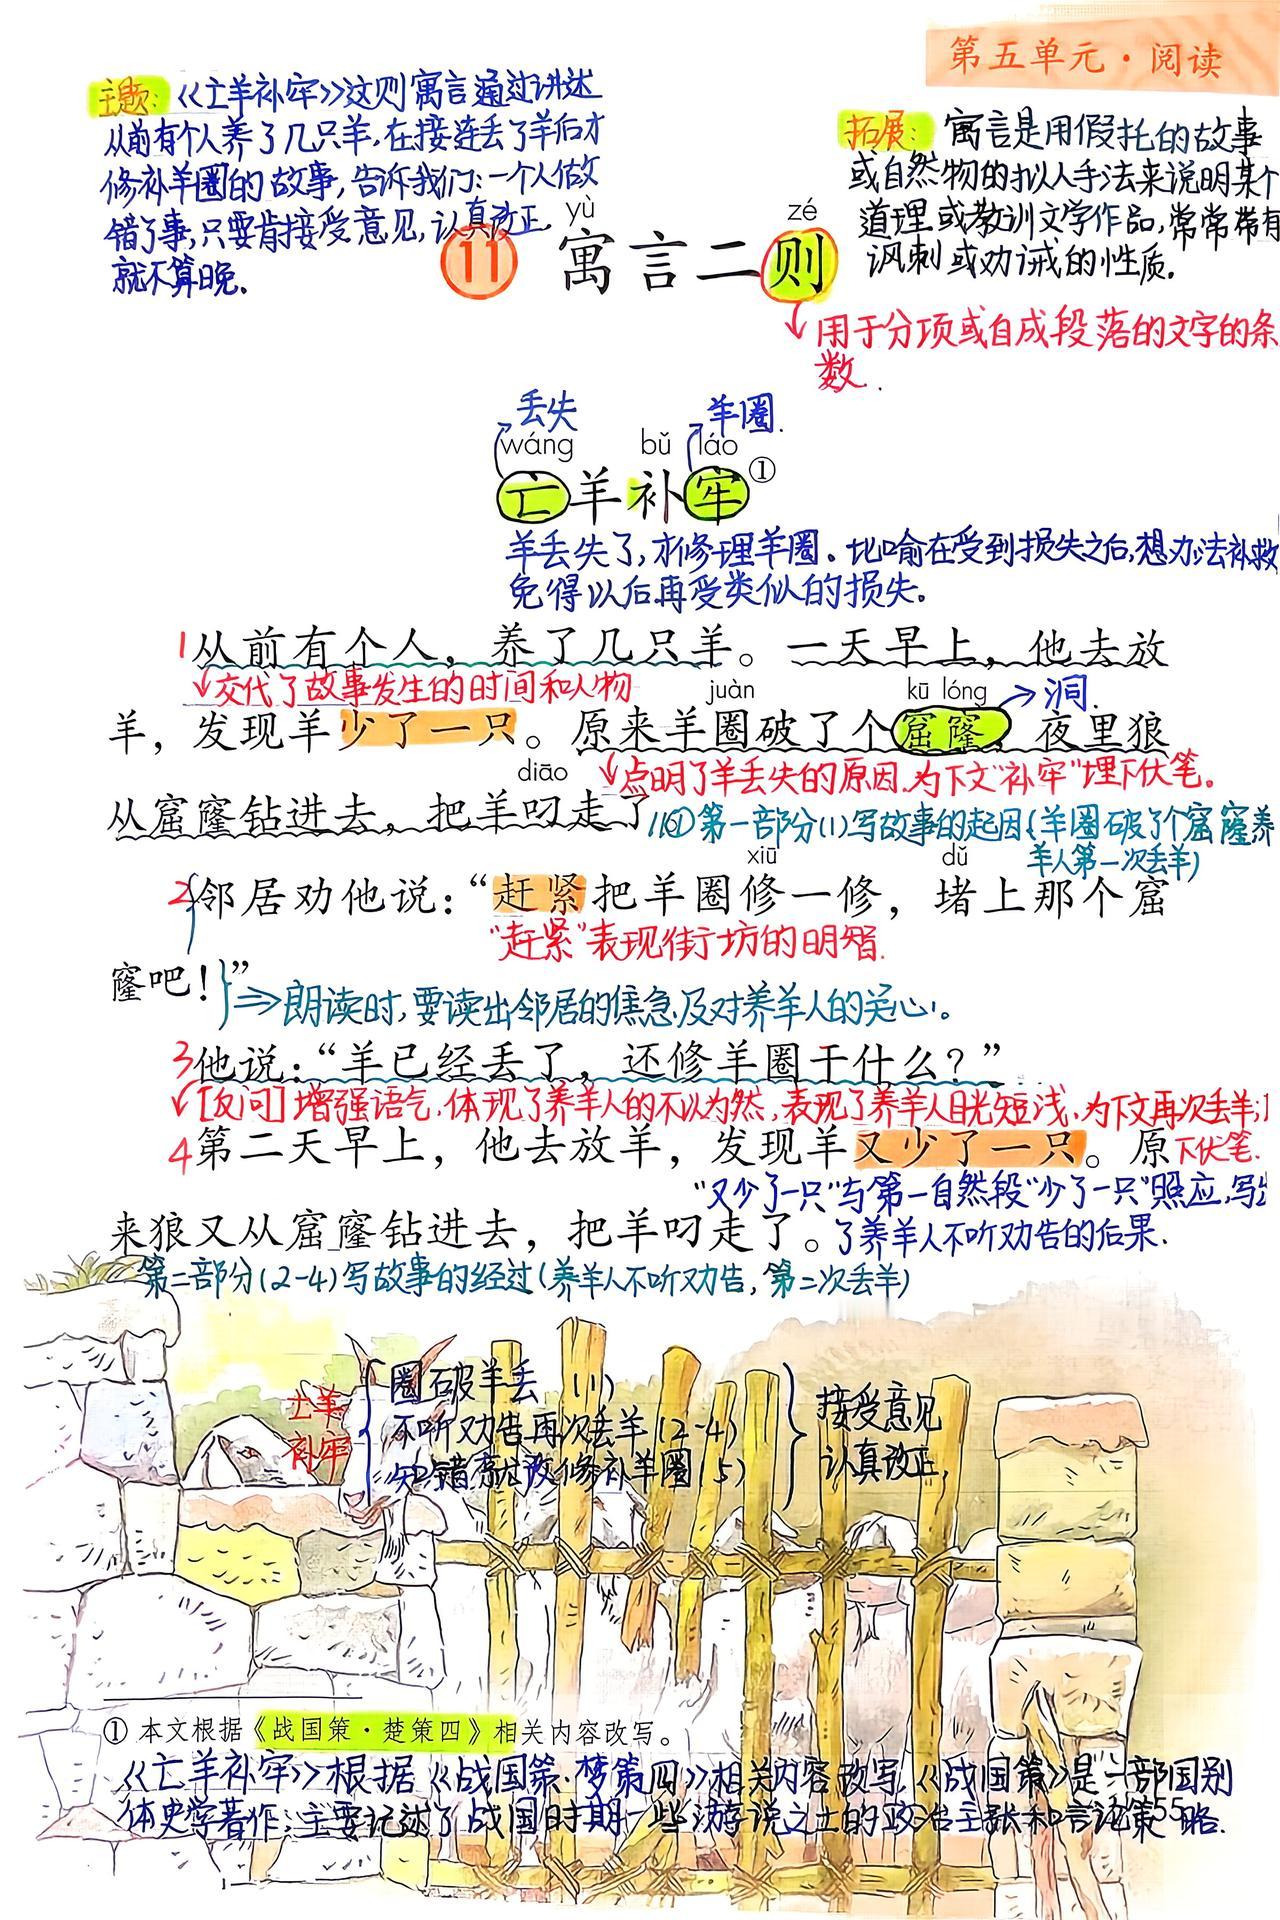 第五单元·阅读
主题:《亡羊补牢》这则寓言通过讲述
从前有个人养了几只羊,在接连丢了羊后才
修补羊圈的故事,告诉我们:一个人做
错了事,只要肯接受意见,认真改正
就不算晚.
拓展: 寓言是用假托的故事
或自然物的拟人手法来说明某个
道理或教训文学作品,常常带有
讽刺或劝诫的性质.
yù zé
11 寓言二则
用于分项或自成段落的文字的条
数.
丢失 羊圈.
wáng bǔ láo
亡羊补牢①
羊丢失了,才修理羊圈。比喻在受到损失之后,想办法补救
免得以后再受类似的损失.
1从前有个人,养了几只羊。一天早上,他去放
交代了故事发生的时间和人物
juàn kū lóng 洞.
羊,发现羊少了一只。原来羊圈破了个窟窿,夜里狼
点明了羊丢失的原因.为下文“补牢”埋下伏笔。
diāo
从窟窿钻进去,把羊叼走了
第一部分(1)写故事的起因(羊圈破了个窟窿养
羊人第一次丢羊)
xiū dǔ
2邻居劝他说:“赶紧把羊圈修一修,堵上那个窟
“赶紧”表现街坊的明智.
窿吧!”
朗读时,要读出邻居的焦急及对养羊人的关心。
3他说:“羊已经丢了,还修羊圈干什么?”
[反问]增强语气.体现了养羊人的不以为然,表现了养羊人目光短浅.为下文再次丢羊
4第二天早上,他去放羊,发现羊又少了一只。原
下伏笔.
“又少了一只”与第一自然段“少了一只”照应,写出
来狼又从窟窿钻进去,把羊叼走了。
了养羊人不听劝告的后果.
第二部分(2-4)写故事的经过(养羊人不听劝告,第二次丢羊)
亡羊
补牢
圈破羊丢 (1)
不听劝告再次丢羊(2-4)
知错就改修补羊圈(5)
接受意见
认真改正.
① 本文根据《战国策·楚策四》相关内容改写。
《亡羊补牢》根据《战国策.梦策四》相关内容改写,《战国策》是一部国别
体史学著作;主要记述了战国时期一些游说之士的政治主张和言论策略.
55